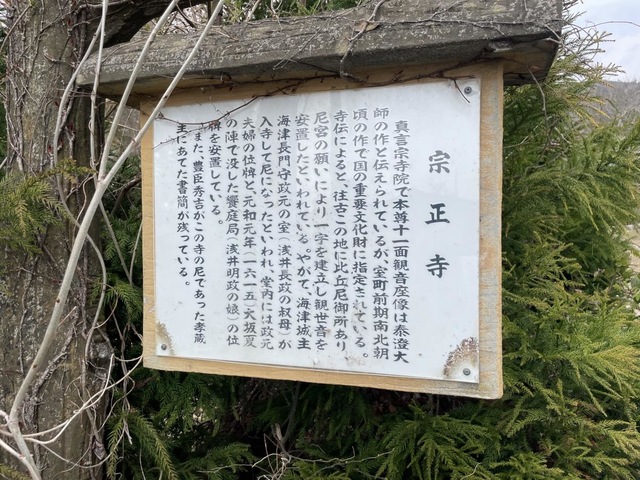 宗正寺
真言宗寺院で本尊十一面観音座像は泰澄大
師の作と伝えられているが、室町前期南北朝
頃の作で国の重要文化財に指定されている。
寺伝によると、往古この地に比丘尼御所あり
尼宮の願いにより一宇を建立し観世音を
安置したといわれている。やがて、海津城主
海津長門守政元の室（浅井長政の叔母）が
入寺して尼になったといわれ、堂内には政元
夫婦の位牌と、元和元年（一六一五）大坂夏
の陣で没した饗庭局（浅井明政の娘）の位
牌を安置している。
また、豊臣秀吉がこの寺の尼であった孝蔵
主にあてた書簡が残っている。